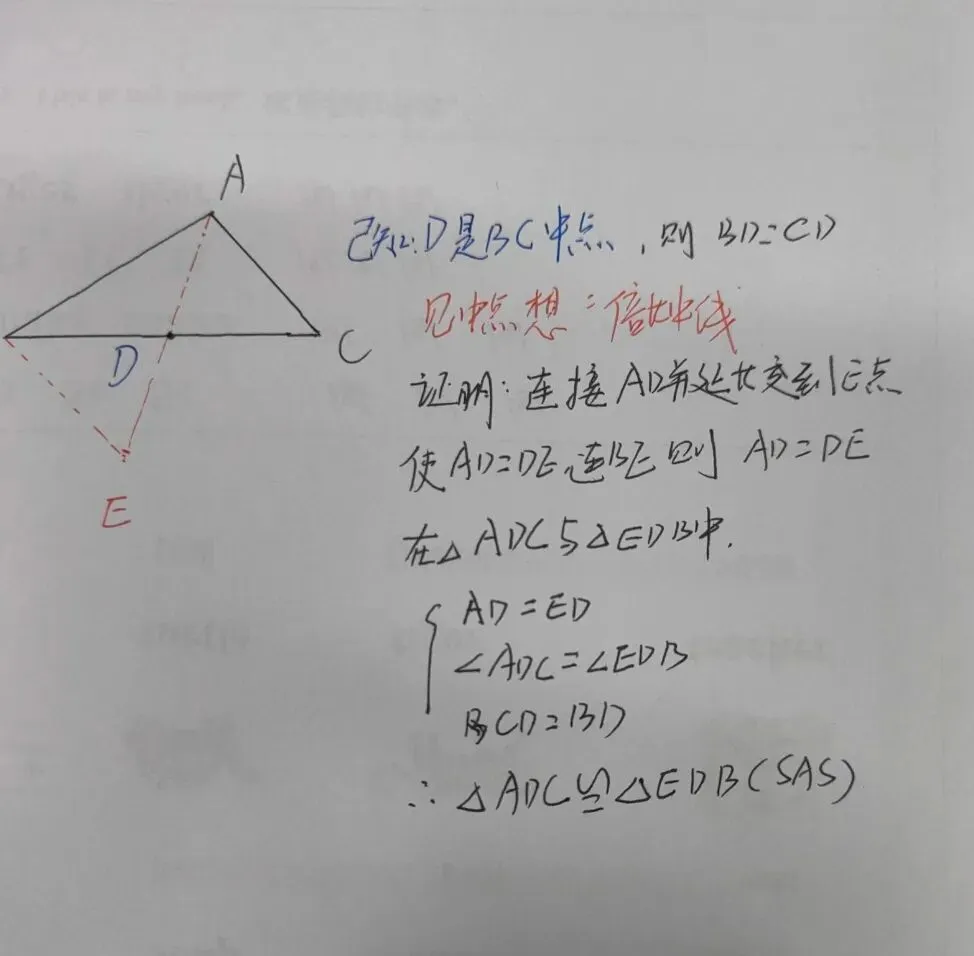 A
已知:D是BC中点,则 BD=CD
见中点想:倍长中线
D
C
证明:连接AD并延长交到E点
使AD=DE,连BE则 AD=DE
E
在△ADC与△EDB中.
AD=ED
∠ADC=∠EDB
CD=BD
∴△ADC≌△EDB(SAS)